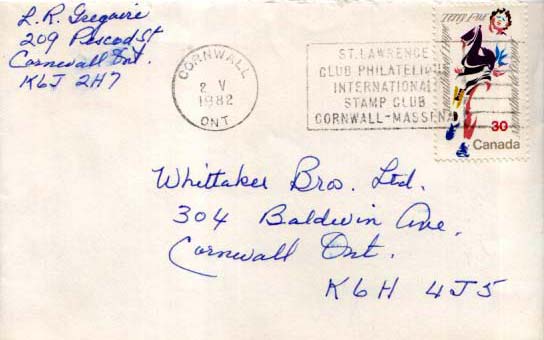 L. R. Gregoire
209 Pescod St
Cornwall Ont.
K6J 2H7
CORNWALL
2 V
1982
ONT
ST. LAWRENCE
CLUB PHILATELIQUE
INTERNATIONAL
STAMP CLUB
CORNWALL-MASSENA
30
Canada
Whittaker Bros. Ltd.
304 Baldwin Ave.
Cornwall Ont.
K6H 4J5